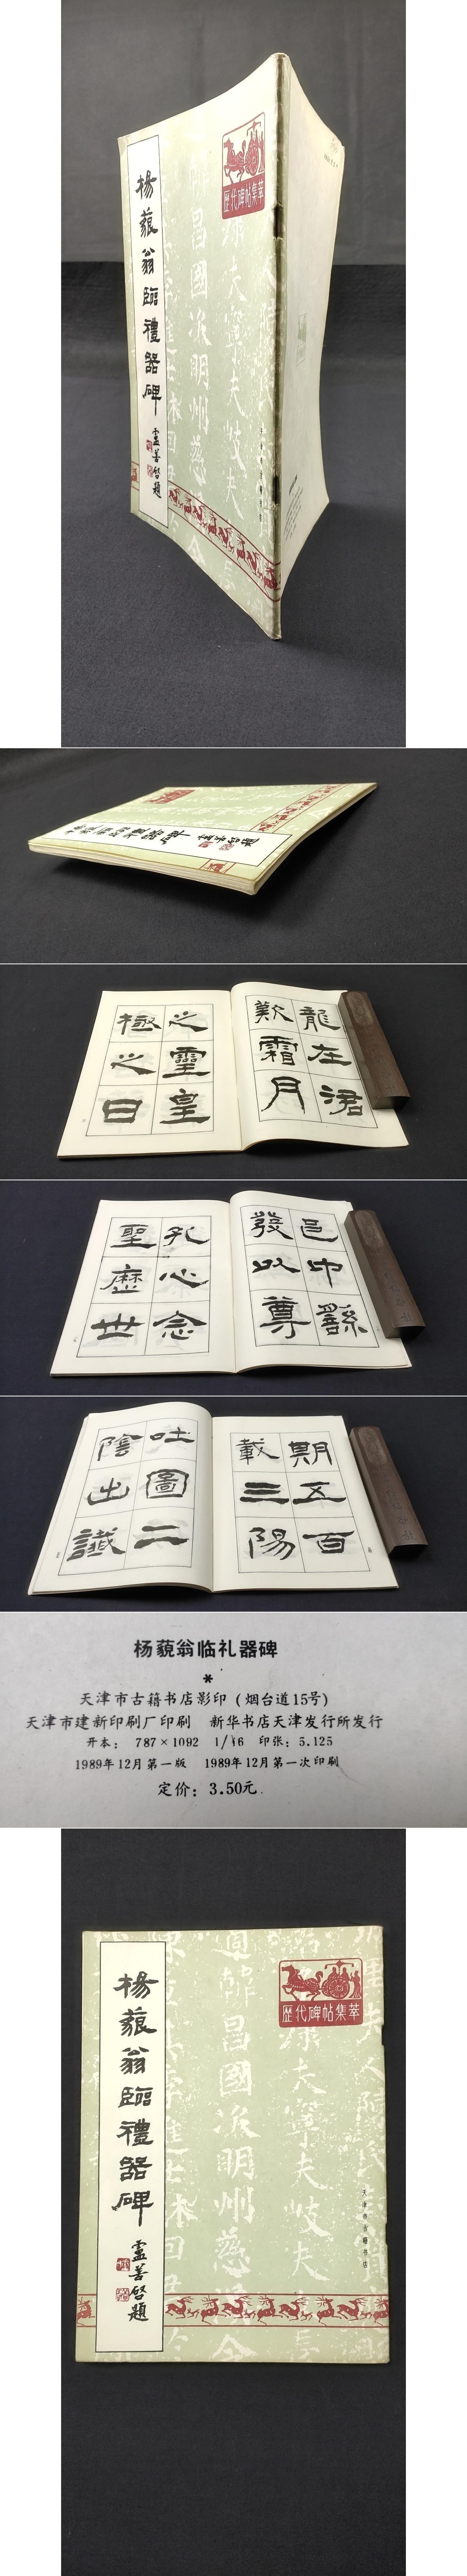 歷代碑帖集萃
楊藐翁臨禮器碑
孟善啓題
龍在涒
歎霜月
之靈皇
極之日
邑中繇
發以尊
孔心念
聖歷世
期五百
載三陽
吐圖二
陰出讖
杨藐翁临礼器碑
*
天津市古籍书店影印（烟台道15号）
天津市建新印刷厂印刷 新华书店天津发行所发行
开本： 787×1092 1/16 印张：5.125
1989年12月第一版 1989年12月第一次印刷
定价：3.50元.
歷代碑帖集萃
昌國派明州慈
夫寧夫岐夫
楊藐翁臨禮器碑
孟善啓題
天津市古籍书店